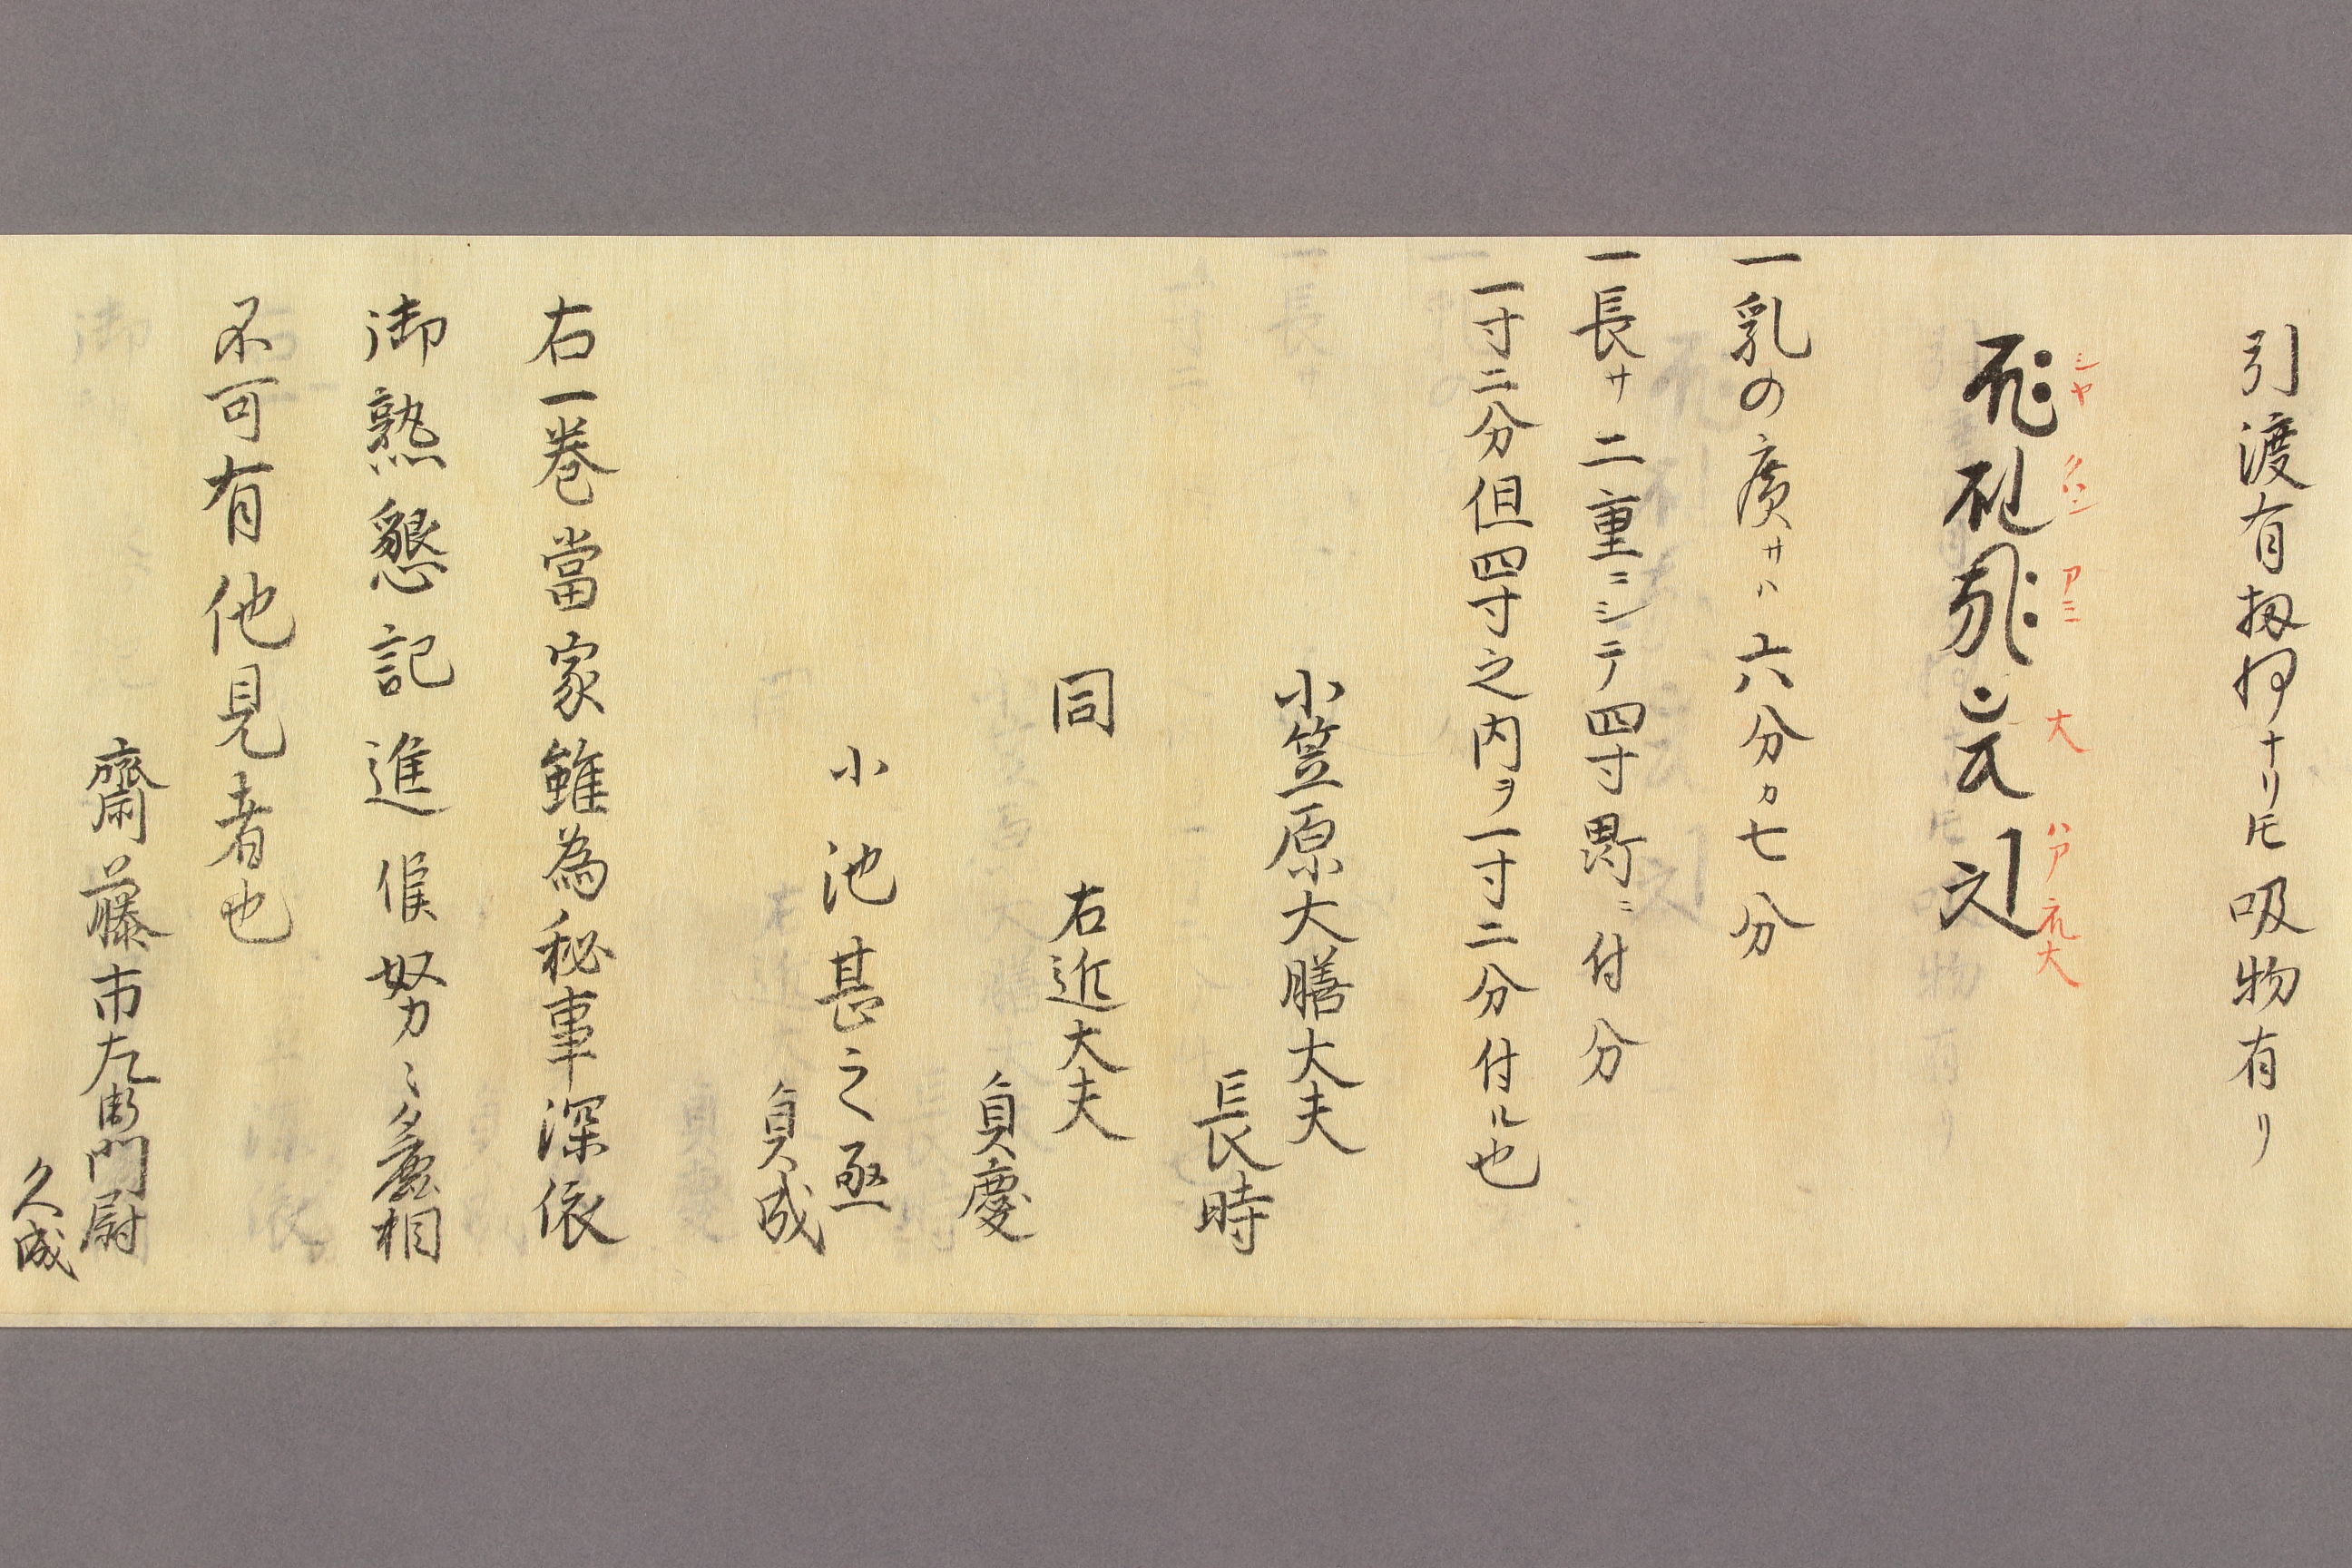 引渡有扱拵ナリ𪜈吸物有リ
シヤ クハン アニ 大 ハア 礼大
一乳の廣サハ六分カ七分
一長サ二重ニシテ四寸畳ニ付分
一寸二分但四寸之内ヲ一寸二分付ル也
小笠原大膳大夫
長時
同 右近大夫
貞慶
小池甚之丞
貞成
右一巻當家雖為秘事深依
御熟懇記進候努〻麁相
不可有他見者也
齋藤市左衛門尉
久成